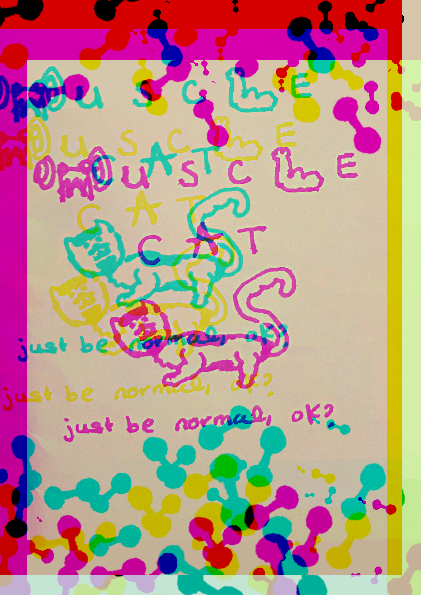 MuSCLE
MuSCLE
CAT
MuSCLE
CAT
CAT
just be normal, oK?
just be normal, oK?
just be normal, oK?